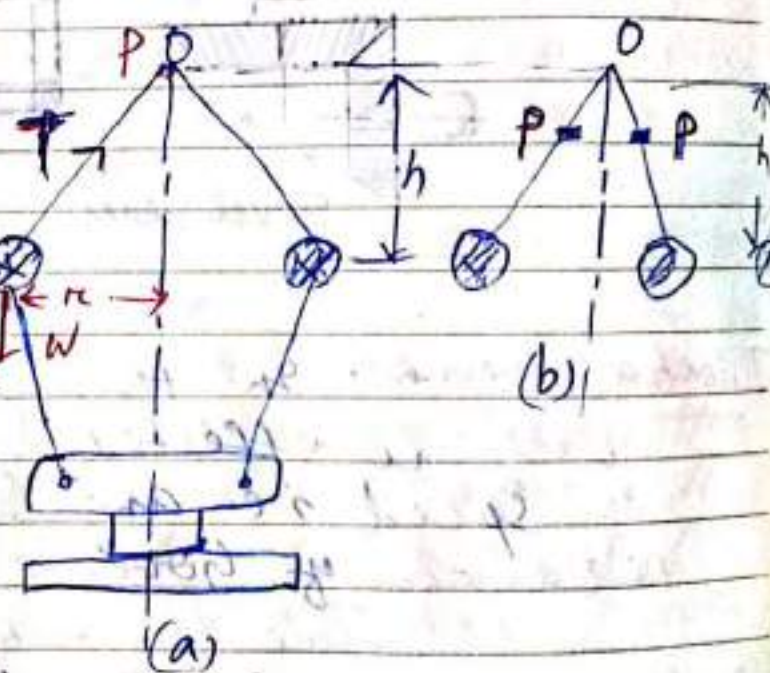 P O
T
h
r
W
(a)
O
P P
h
(b)